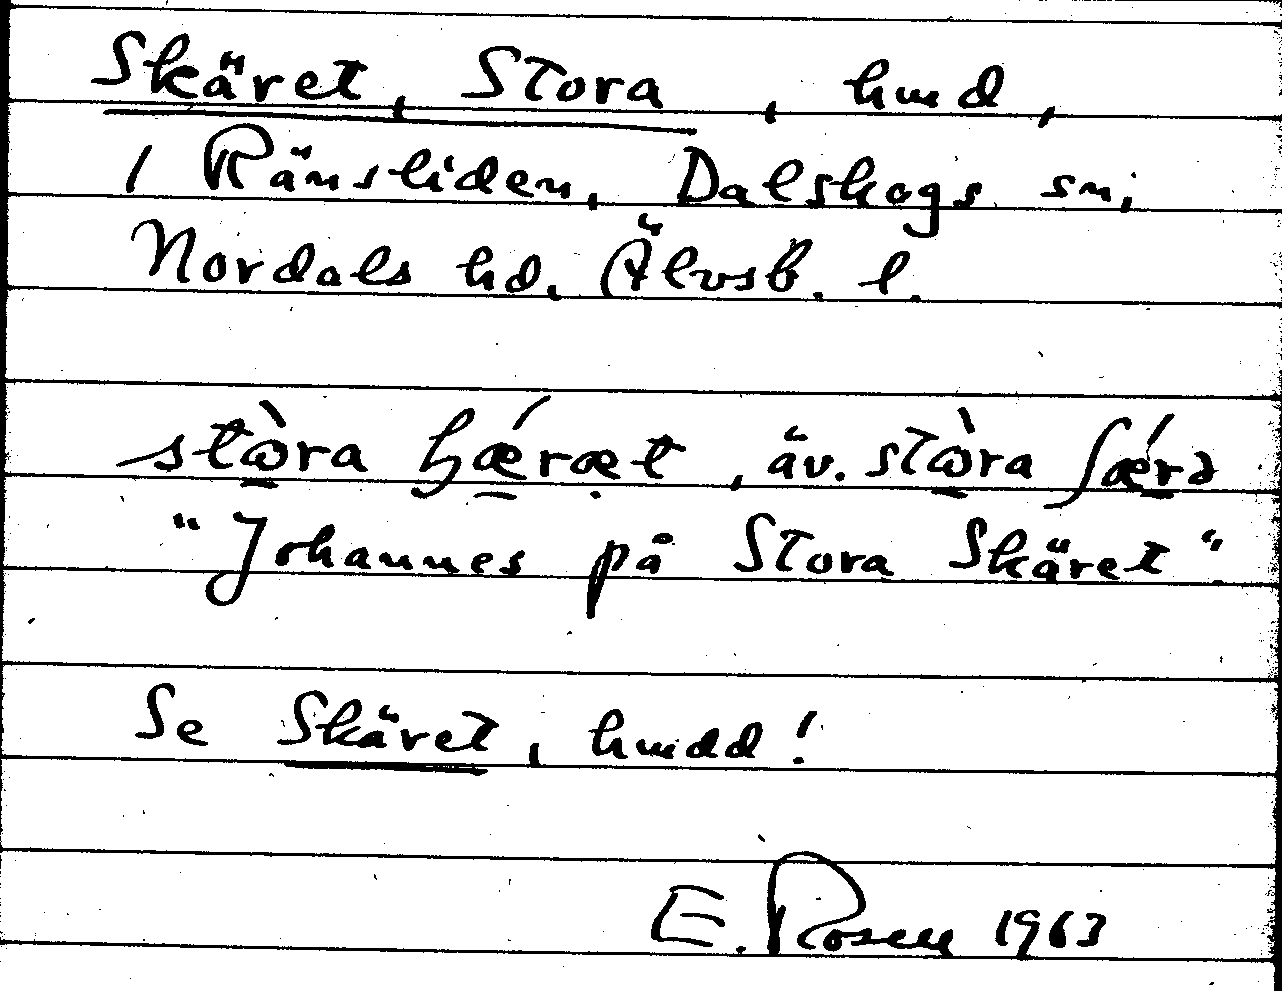 Skäret, Stora, hmd,
i Ränsliden, Dalskogs sn,
Nordals hd. Älvsb. l.
stòra ʃǽræt, äv. stòra ʃǽrə
"Johannes på Stora Skäret".
Se Skäret, hmdd!
E. Rosell 1963